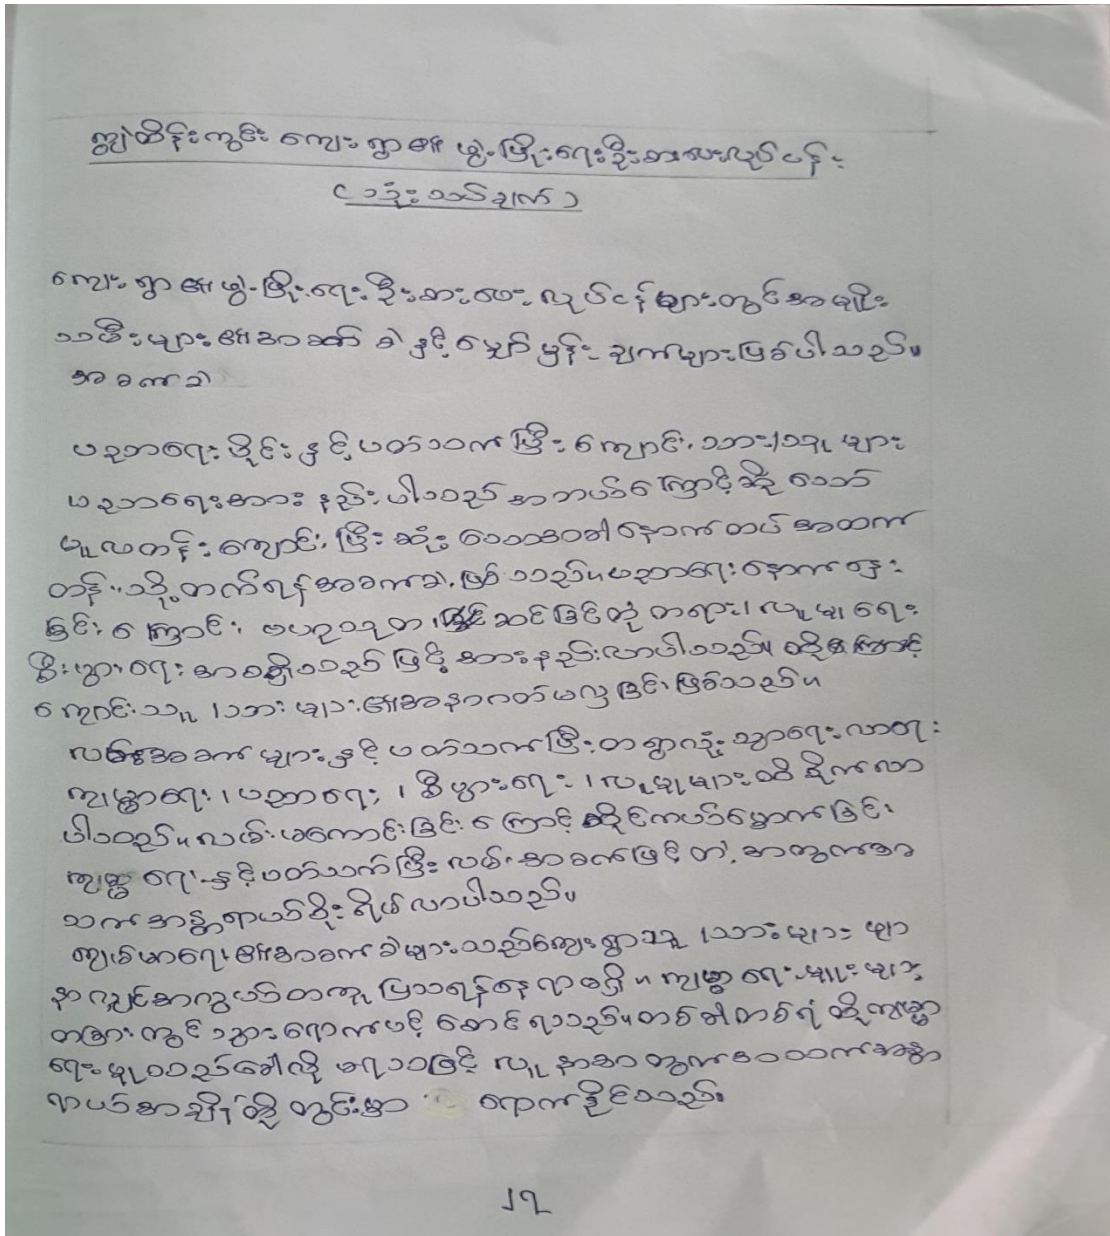 ကျွဲထိန်းကွင်း ကျေးရွာ၏ ဖွံ့ဖြိုးရေးဦးစားပေးလုပ်ငန်း
(သုံးသပ်ချက်)
ကျေးရွာ၏ ဖွံ့ဖြိုးရေးဦးစားပေးလုပ်ငန်းများတွင် အမျိုး
သမီးများ၏ အခက်ခဲနှင့် မျှော်မှန်းချက်များဖြစ်ပါသည်။
အခက်ခဲ
ပညာရေးပိုင်းနှင့်ပတ်သက်ပြီး ကျောင်းသား/သူများ
ပညာရေးအားနည်းပါသည် အဘယ်ကြောင့်ဆိုသော်
မူလတန်းကျောင်းပြီးဆုံးသောအခါ နောက်ထပ်အထက်
တန်းသို့တက်ရန်အခက်ခဲဖြစ်သည်။ ပညာရေးနောက်နှေး
ခြင်းကြောင့် ဗဟုသုတ၊ ဆင်ခြင်တုံတရား၊ လူမှုရေး
စီးပွားရေးအစရှိသည်ဖြင့် အားနည်းလာပါသည်။ ထို့ကြောင့်
ကျောင်းသူ/သားများ၏ အနာဂတ်မလှခြင်းဖြစ်သည်။
လမ်းအခက်များနှင့်ပတ်သက်ပြီး တရွာလုံးသွားရေးလာရေး
ကျမ္မာရေး၊ ပညာရေး၊ စီးပွားရေး၊ လူမှုများထိခိုက်လာ
ပါသည်။ လမ်းမကောင်းခြင်းကြောင့် ဆိုင်ကယ်မှောက်ခြင်း
ကျမ္မာရေးနှင့်ပတ်သက်ပြီး လမ်းအခက်ဖြင့် အတွက်အ
သက်အန္တရာယ်စိုးရိမ်လာပါသည်။
ကျမ်မာရေး၏အခက်ခဲများသည် ကျေးရွာသူ/သားများ ဖျား
နာလျှင်အလွယ်တကူပြသရန်နေရာမရှိ။ ကျမ္မာရေးမှူးများ
တခြားတွင်သွားရောက်ပင့်ဆောင်ရသည်။ တစ်ခါတစ်ရံထိုကျမ္မာ
ရေးမှုသည်ခေါ်လို့မရသဖြင့် လူနာအတွက်အသက်အန္တ
ရာယ်အချိန်တွင်းမှာ ရောက်နိုင်သည်။
၂၇